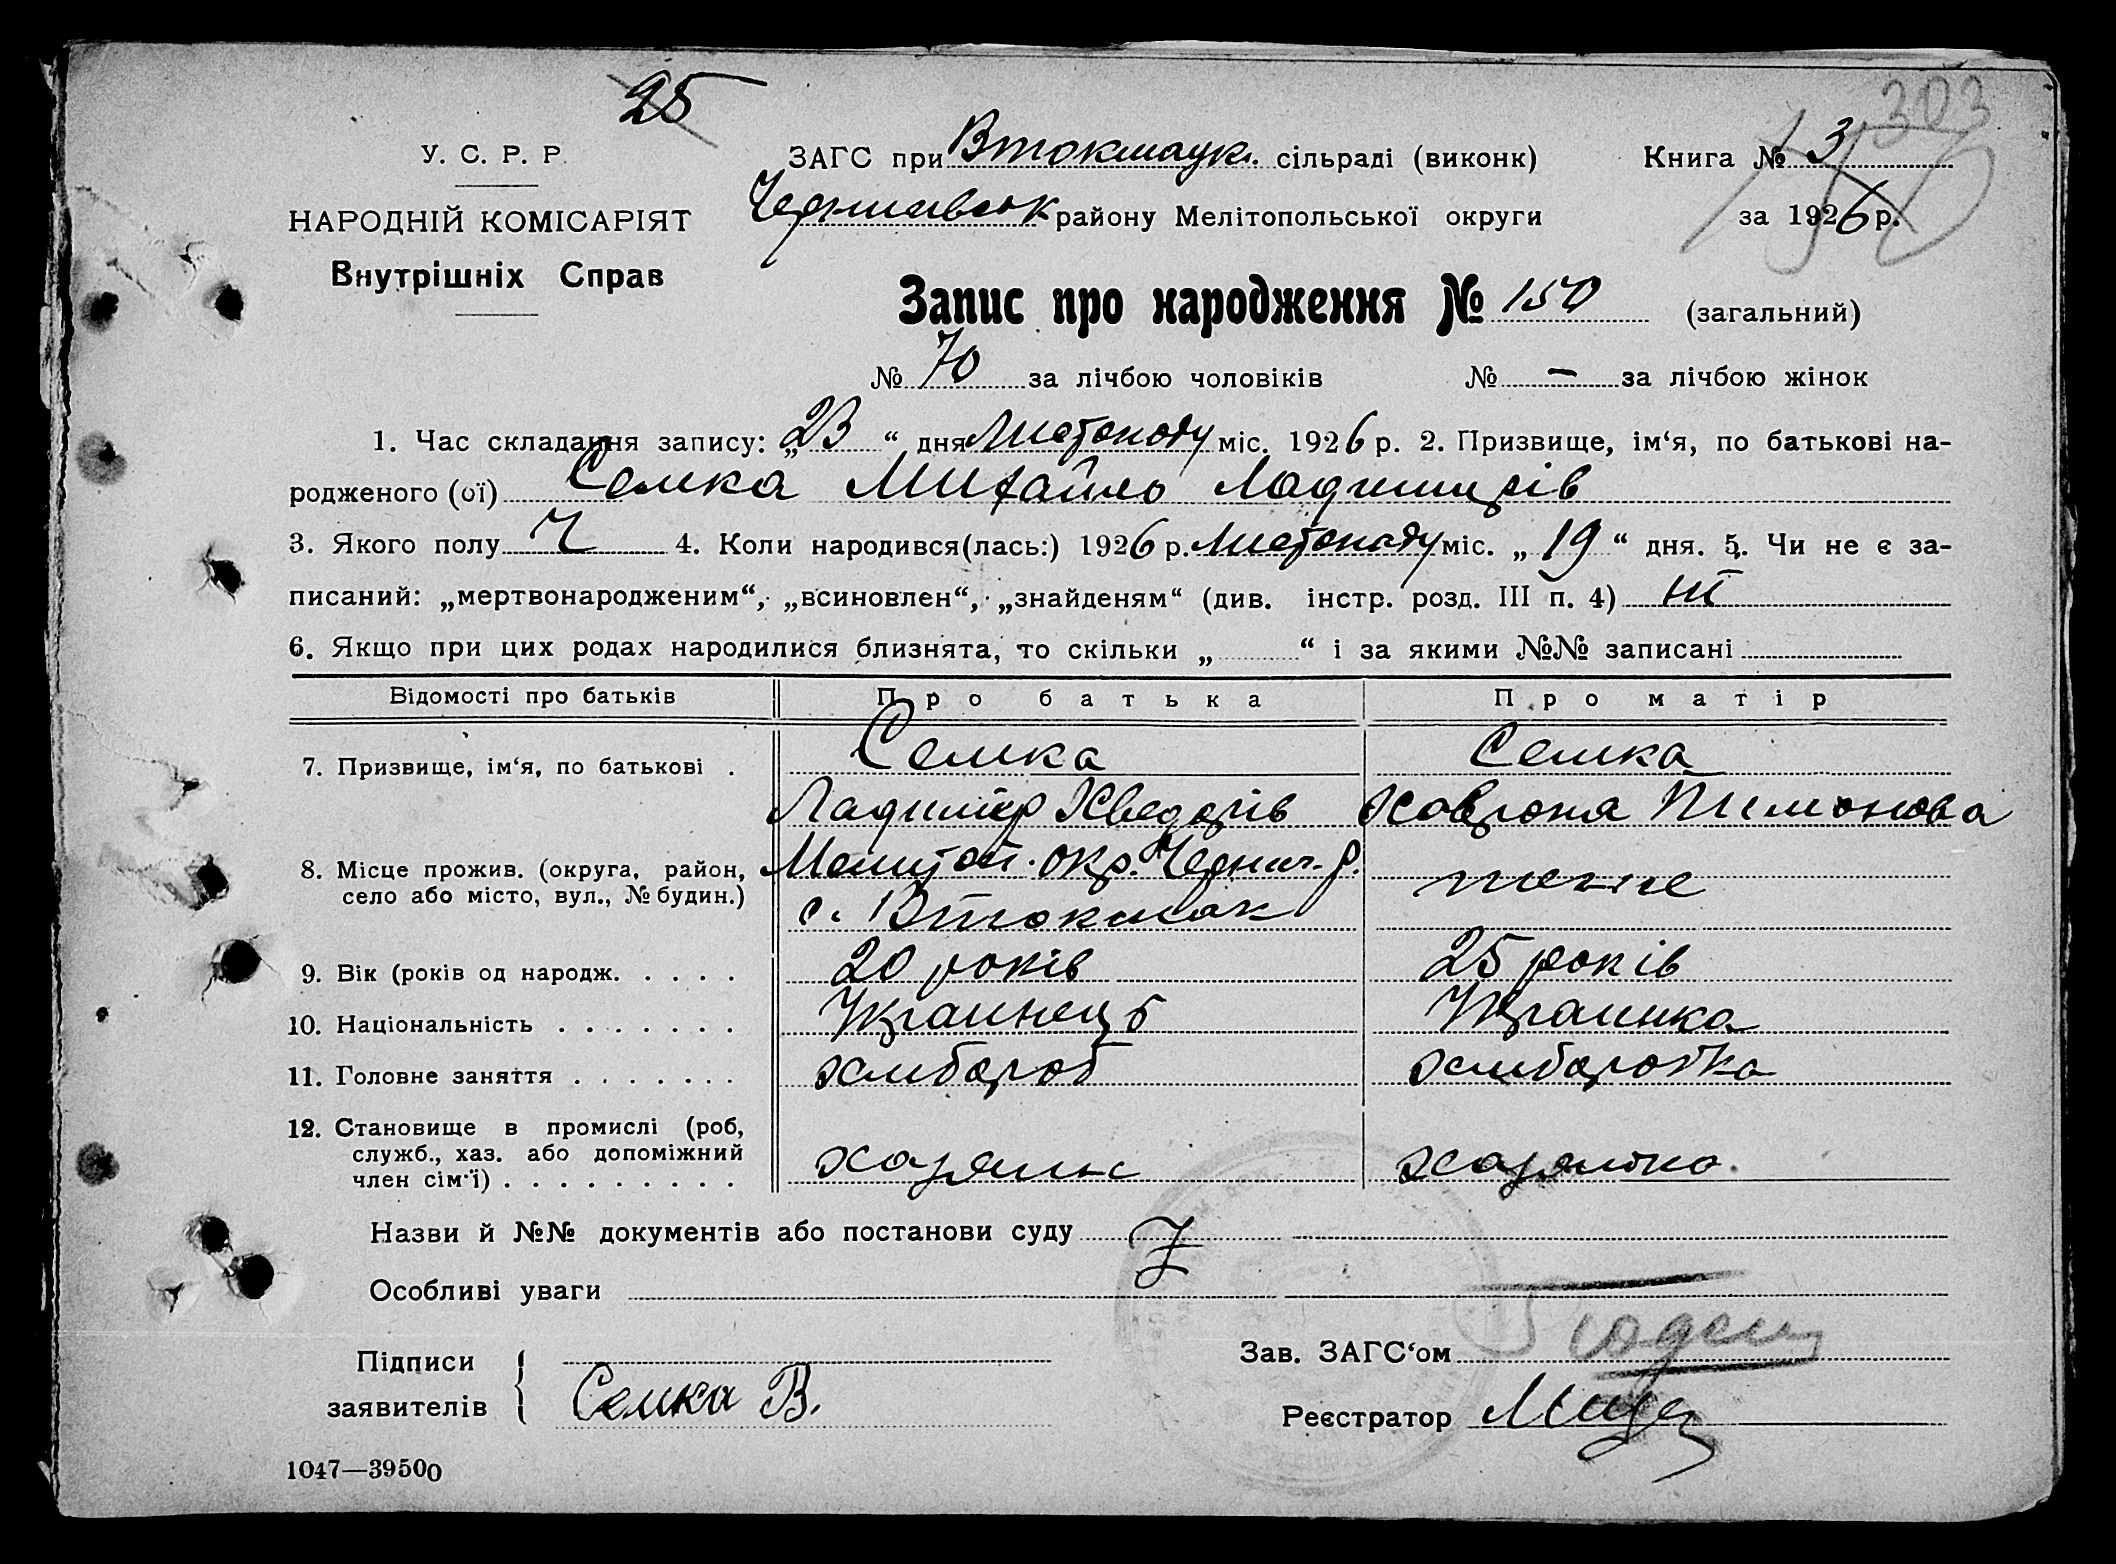 25
303
У. С. Р. Р.
НАРОДНІЙ КОМІСАРІЯТ
Внутрішніх Справ
ЗАГС при Втокмацьк. сільраді (виконк) Книга № 3
району Мелітопольської округи за 1926 р.
Запис про народження № 150 (загальний)
№ 70 за лічбою чоловіків № — за лічбою жінок
1. Час складання запису: „23“ дня Листопаду міс. 1926 р. 2. Призвище, ім‘я, по батькові на-
родженого (ої) Семка Михайло Ладимирів
3. Якого полу Ч 4. Коли народився(лась:) 1926 р. Листопаду міс. „19“ дня. 5. Чи не є за-
писаний: „мертвонародженим“, „всиновлен“, „знайденям“ (див. інстр. розд. III п. 4) ні
6. Якщо при цих родах народилися близнята, то скільки „ “ і за якими №№ записані
Відомості про батьків Про батька Про матір
7. Призвище, ім‘я, по батькові . Семка Семка
Ладимир Хведорів Ховроня Тимонова
8. Місце прожив. (округа, район, село або місто, вул., № будин.) Мелитоп. окр. Черниг. р. теж
с. Втокмак
9. Вік (років од народж. . . . . 20 років 25 років
10. Національність . . . . . . . Украинець Украинка
11. Головне заняття . . . . . . . хлибороб хлиборобка
12. Становище в промислі (роб, служб., хаз. або допоміжний член сім‘ї) . . . . . . . . . хазяин хазяйка
Назви й №№ документів або постанови суду
Особливі уваги
Підписи заявителів { Семка В.
Зав. ЗАГС‘ом
Реєстратор
1047—39500